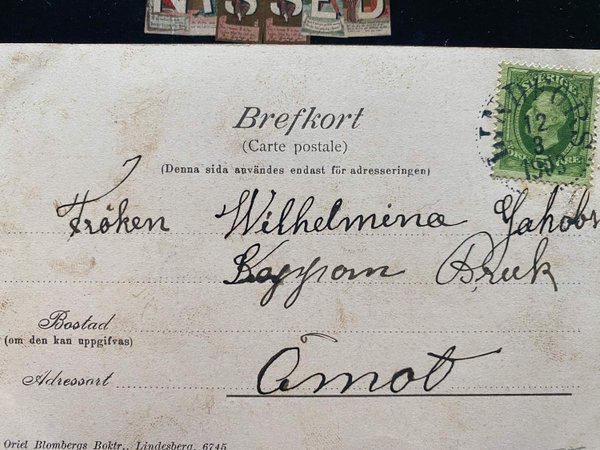 NISSED
Brefkort
(Carte postale)
(Denna sida användes endast för adresseringen)
SVERIGE
12
3
Fröken Wilhelmina Jakobs
Koppom Bruk
Bostad
(om den kan uppgifvas)
Åmot
Adressort
Oriel Blombergs Boktr., Lindesberg, 6745